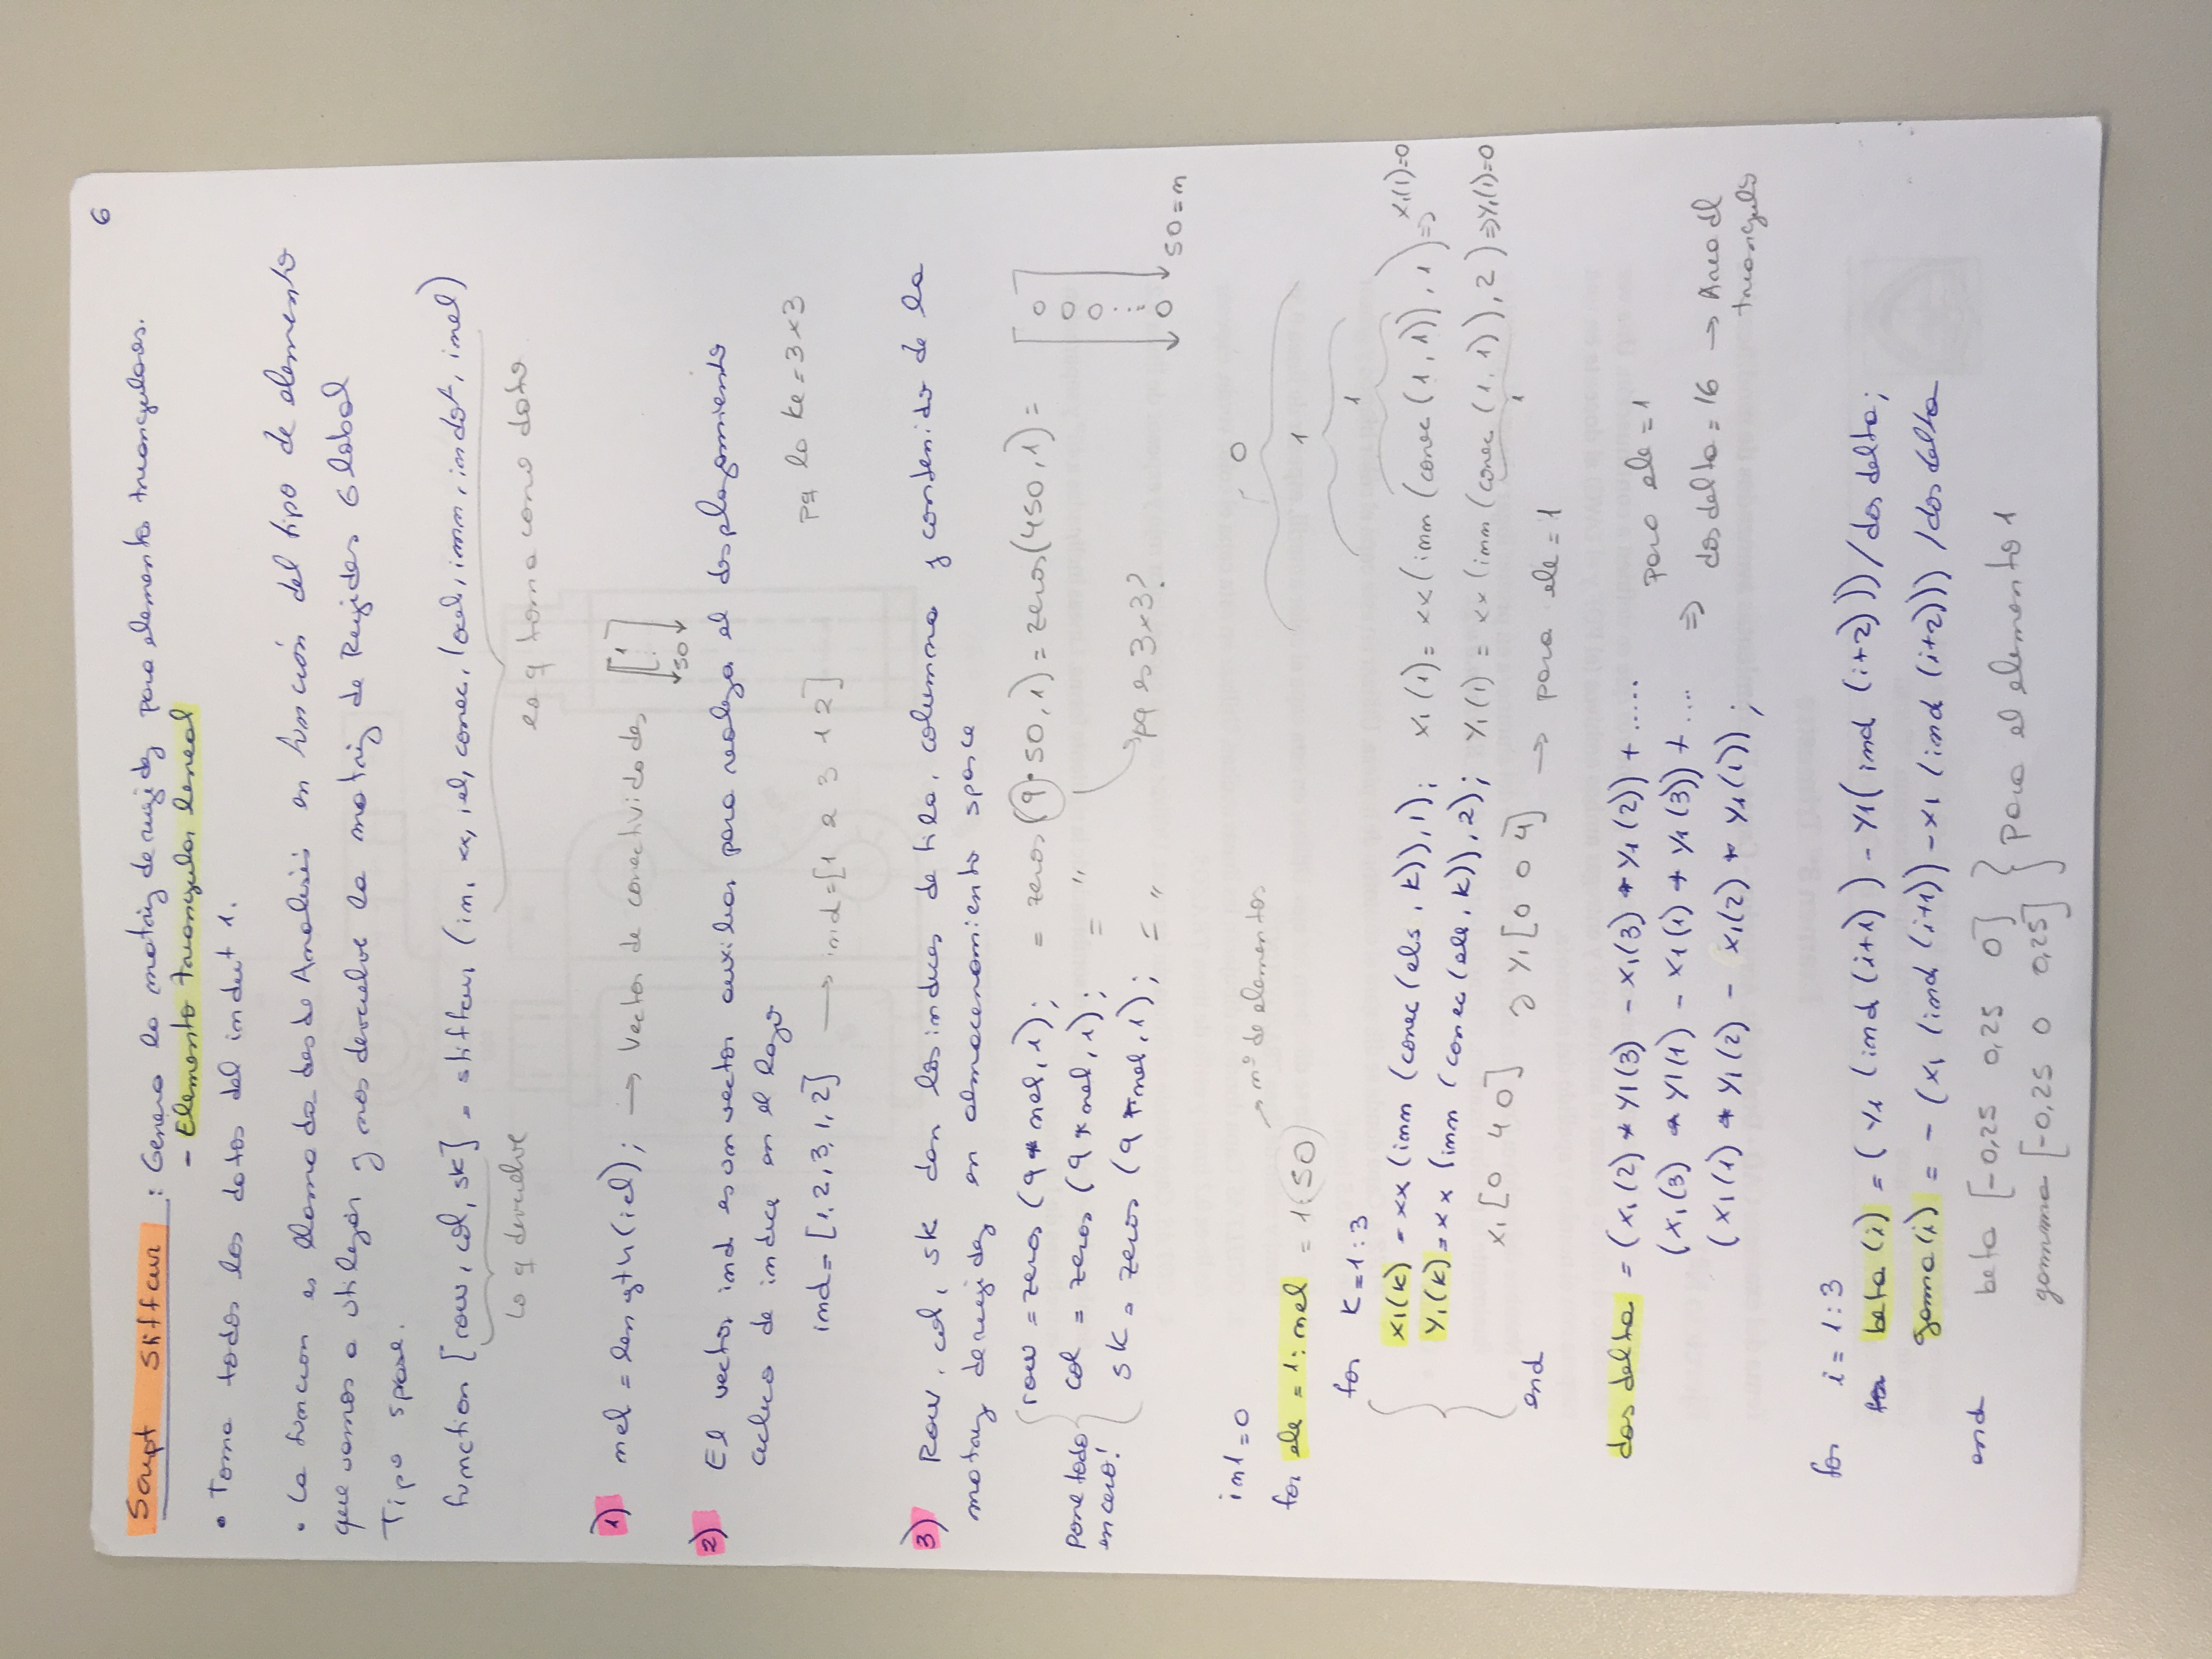 6
Script Stiffcur : Genera la matriz de rigidez para elementos triangulares.
- Elemento triangular lineal
• Toma todos los datos del indut 1.
• La función es llamada desde Analisis en función del tipo de elemento
que vamos a utilizar y nos devuelve la matriz de Rigidez Global
Tipo sparse.
function [row, col, sk] = stiffcur (in, xx, iel, conec, local, inn, indof, inel)
lo q devuelve
lo q toma como dato
1) nel = length(iel); → Vector de conectividades [1 50]
2) El vector ind es un vector auxiliar para realiza el desplazamiento
ciclico de indice en el lazo
ind = [1, 2, 3, 1, 2] → ind = [1 2 3 1 2]
pq la ke = 3 x 3
3) Row, col, sk dan los indices de fila, columna y contenido de la
matriz de rigidez en almacenamiento sparce
row = zeros (9 * nel, 1); = zeros (9 · 50, 1) = zeros(450, 1) = [0 0 0 ... 0] 50 = n
pone todo en cero!
col = zeros (9 * nel, 1); = "
sk = zeros (9 * nel, 1); = "
pq es 3x3?
in1 = 0
→ nº de elementos
for ele = 1 : nel = 1 : 50
for k = 1 : 3
0
1
1
x1(k) = xx (inn (conec (ele, k)), 1); x1(1) = xx (inn (conec (1, 1)), 1) ⇒ x1(1)=0
y1(k) = xx (inn (conec (ele, k)), 2); y1(1) = xx (inn (conec (1, 1)), 2) ⇒ y1(1)=0
1
x1 [0 4 0] y y1 [0 0 4] → para ele = 1
end
dos delta = (x1(2) * y1(3) - x1(3) * y1(2)) + .....
(x1(3) * y1(1) - x1(1) * y1(3)) + ....
(x1(1) * y1(2) - x1(2) * y1(1));
⇒ para ele = 1
dos delta = 16 → Area dl
triangulo
for i = 1 : 3
beta (i) = (y1 (ind (i+1)) - y1 (ind (i+2))) / dos delta;
gama (i) = - (x1 (ind (i+1)) - x1 (ind (i+2))) / dos delta
end
beta [-0,25 0,25 0]
gamma [-0,25 0 0,25]
} para el elemento 1